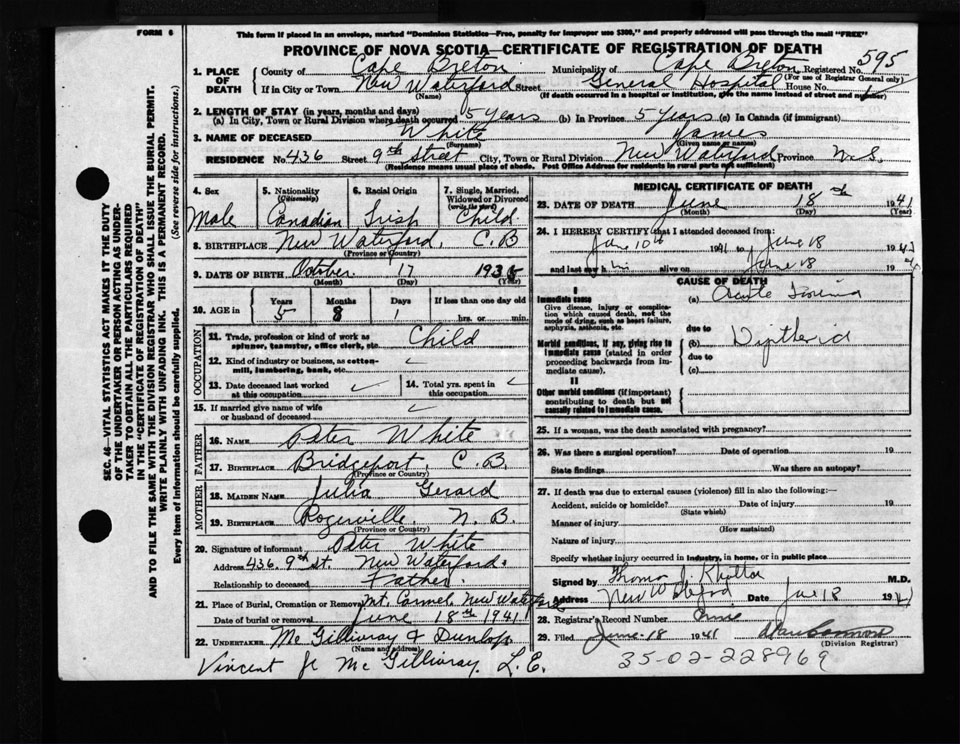 FORM 6
This form if placed in an envelope, marked "Dominion Statistics—Free, penalty for improper use $300," and properly addressed will pass through the mail "FREE"
PROVINCE OF NOVA SCOTIA—CERTIFICATE OF REGISTRATION OF DEATH
Registered No. 595
(For use of Registrar General only)
1. PLACE OF DEATH County of Cape Breton Municipality of Cape Breton
If in City or Town New Waterford Street General Hospital House No. 1
(Name) (If death occurred in a hospital or institution, give the name instead of street and number)
2. LENGTH OF STAY (in years, months and days)
(a) In City, Town or Rural Division where death occurred 5 years (b) In Province 5 years (c) In Canada (if immigrant)
3. NAME OF DECEASED White James
(Surname) (Given name or names)
RESIDENCE No. 436 Street 9th Street City, Town or Rural Division New Waterford Province N.S.
(Residence means usual place of abode. Post Office Address for residents in rural parts not sufficient)
4. Sex Male
5. Nationality (Citizenship) Canadian
6. Racial Origin Irish
7. Single, Married, Widowed or Divorced (write the word) Child
8. BIRTHPLACE New Waterford, C.B
(Province or Country)
9. DATE OF BIRTH October 17 1935
(Month) (Day) (Year)
10. AGE in Years Months Days If less than one day old
5 8 1 hrs. or min.
OCCUPATION
11. Trade, profession or kind of work as spinner, teamster, office clerk, etc. Child
12. Kind of industry or business, as cotton-mill, lumbering, bank, etc. ✓
13. Date deceased last worked at this occupation ✓
14. Total yrs. spent in this occupation ✓
15. If married give name of wife or husband of deceased ✓
FATHER
16. NAME Peter White
17. BIRTHPLACE Bridgeport, C.B.
(Province or Country)
MOTHER
18. MAIDEN NAME Julia Gerard
19. BIRTHPLACE Rogerville, N.B.
(Province or Country)
20. Signature of informant Peter White
Address 436. 9th St. New Waterford.
Relationship to deceased Father.
21. Place of Burial, Cremation or Removal Mt. Carmel, New Waterford
Date of burial or removal June 18th 1941
22. UNDERTAKER Mc Gillivray & Dunlop
(Name and address)
Vincent Jr Mc Gillivray. L.E.
MEDICAL CERTIFICATE OF DEATH
23. DATE OF DEATH June 18th 1941
(Month) (Day) (Year)
24. I HEREBY CERTIFY that I attended deceased from:
June 10th 1941 to June 18 1941
and last saw him alive on June 18 1941
CAUSE OF DEATH
I
Immediate cause
Give disease, injury or complication which caused death, not the mode of dying, such as heart failure, asphyxia, asthenia, etc.
(a) Acute
due to
Morbid conditions, if any, giving rise to immediate cause (stated in order proceeding backwards from immediate cause).
(b) Diptheria
due to
(c)
II
Other morbid conditions (if important) contributing to death but not causally related to immediate cause.
25. If a woman, was the death associated with pregnancy?
26. Was there a surgical operation? Date of operation 19
State findings Was there an autopsy?
27. If death was due to external causes (violence) fill in also the following:—
Accident, suicide or homicide? Date of injury 19
(State which)
Manner of injury
(How sustained)
Nature of injury
Specify whether injury occurred in industry, in home, or in public place
Signed by Thomas J M.D.
Address New Waterford Date June 18 1941
28. Registrar's Record Number
29. Filed June 18 1941
(Division Registrar)
35-02-228969
SEC. 46—VITAL STATISTICS ACT MAKES IT THE DUTY OF THE UNDERTAKER OR PERSON ACTING AS UNDERTAKER TO OBTAIN ALL THE PARTICULARS REQUIRED IN THE "CERTIFICATE OF REGISTRATION OF DEATH"
AND TO FILE THE SAME WITH THE DIVISION REGISTRAR WHO SHALL ISSUE THE BURIAL PERMIT.
WRITE PLAINLY WITH UNFADING INK. THIS IS A PERMANENT RECORD.
Every item of information should be carefully supplied. (See reverse side for instructions.)